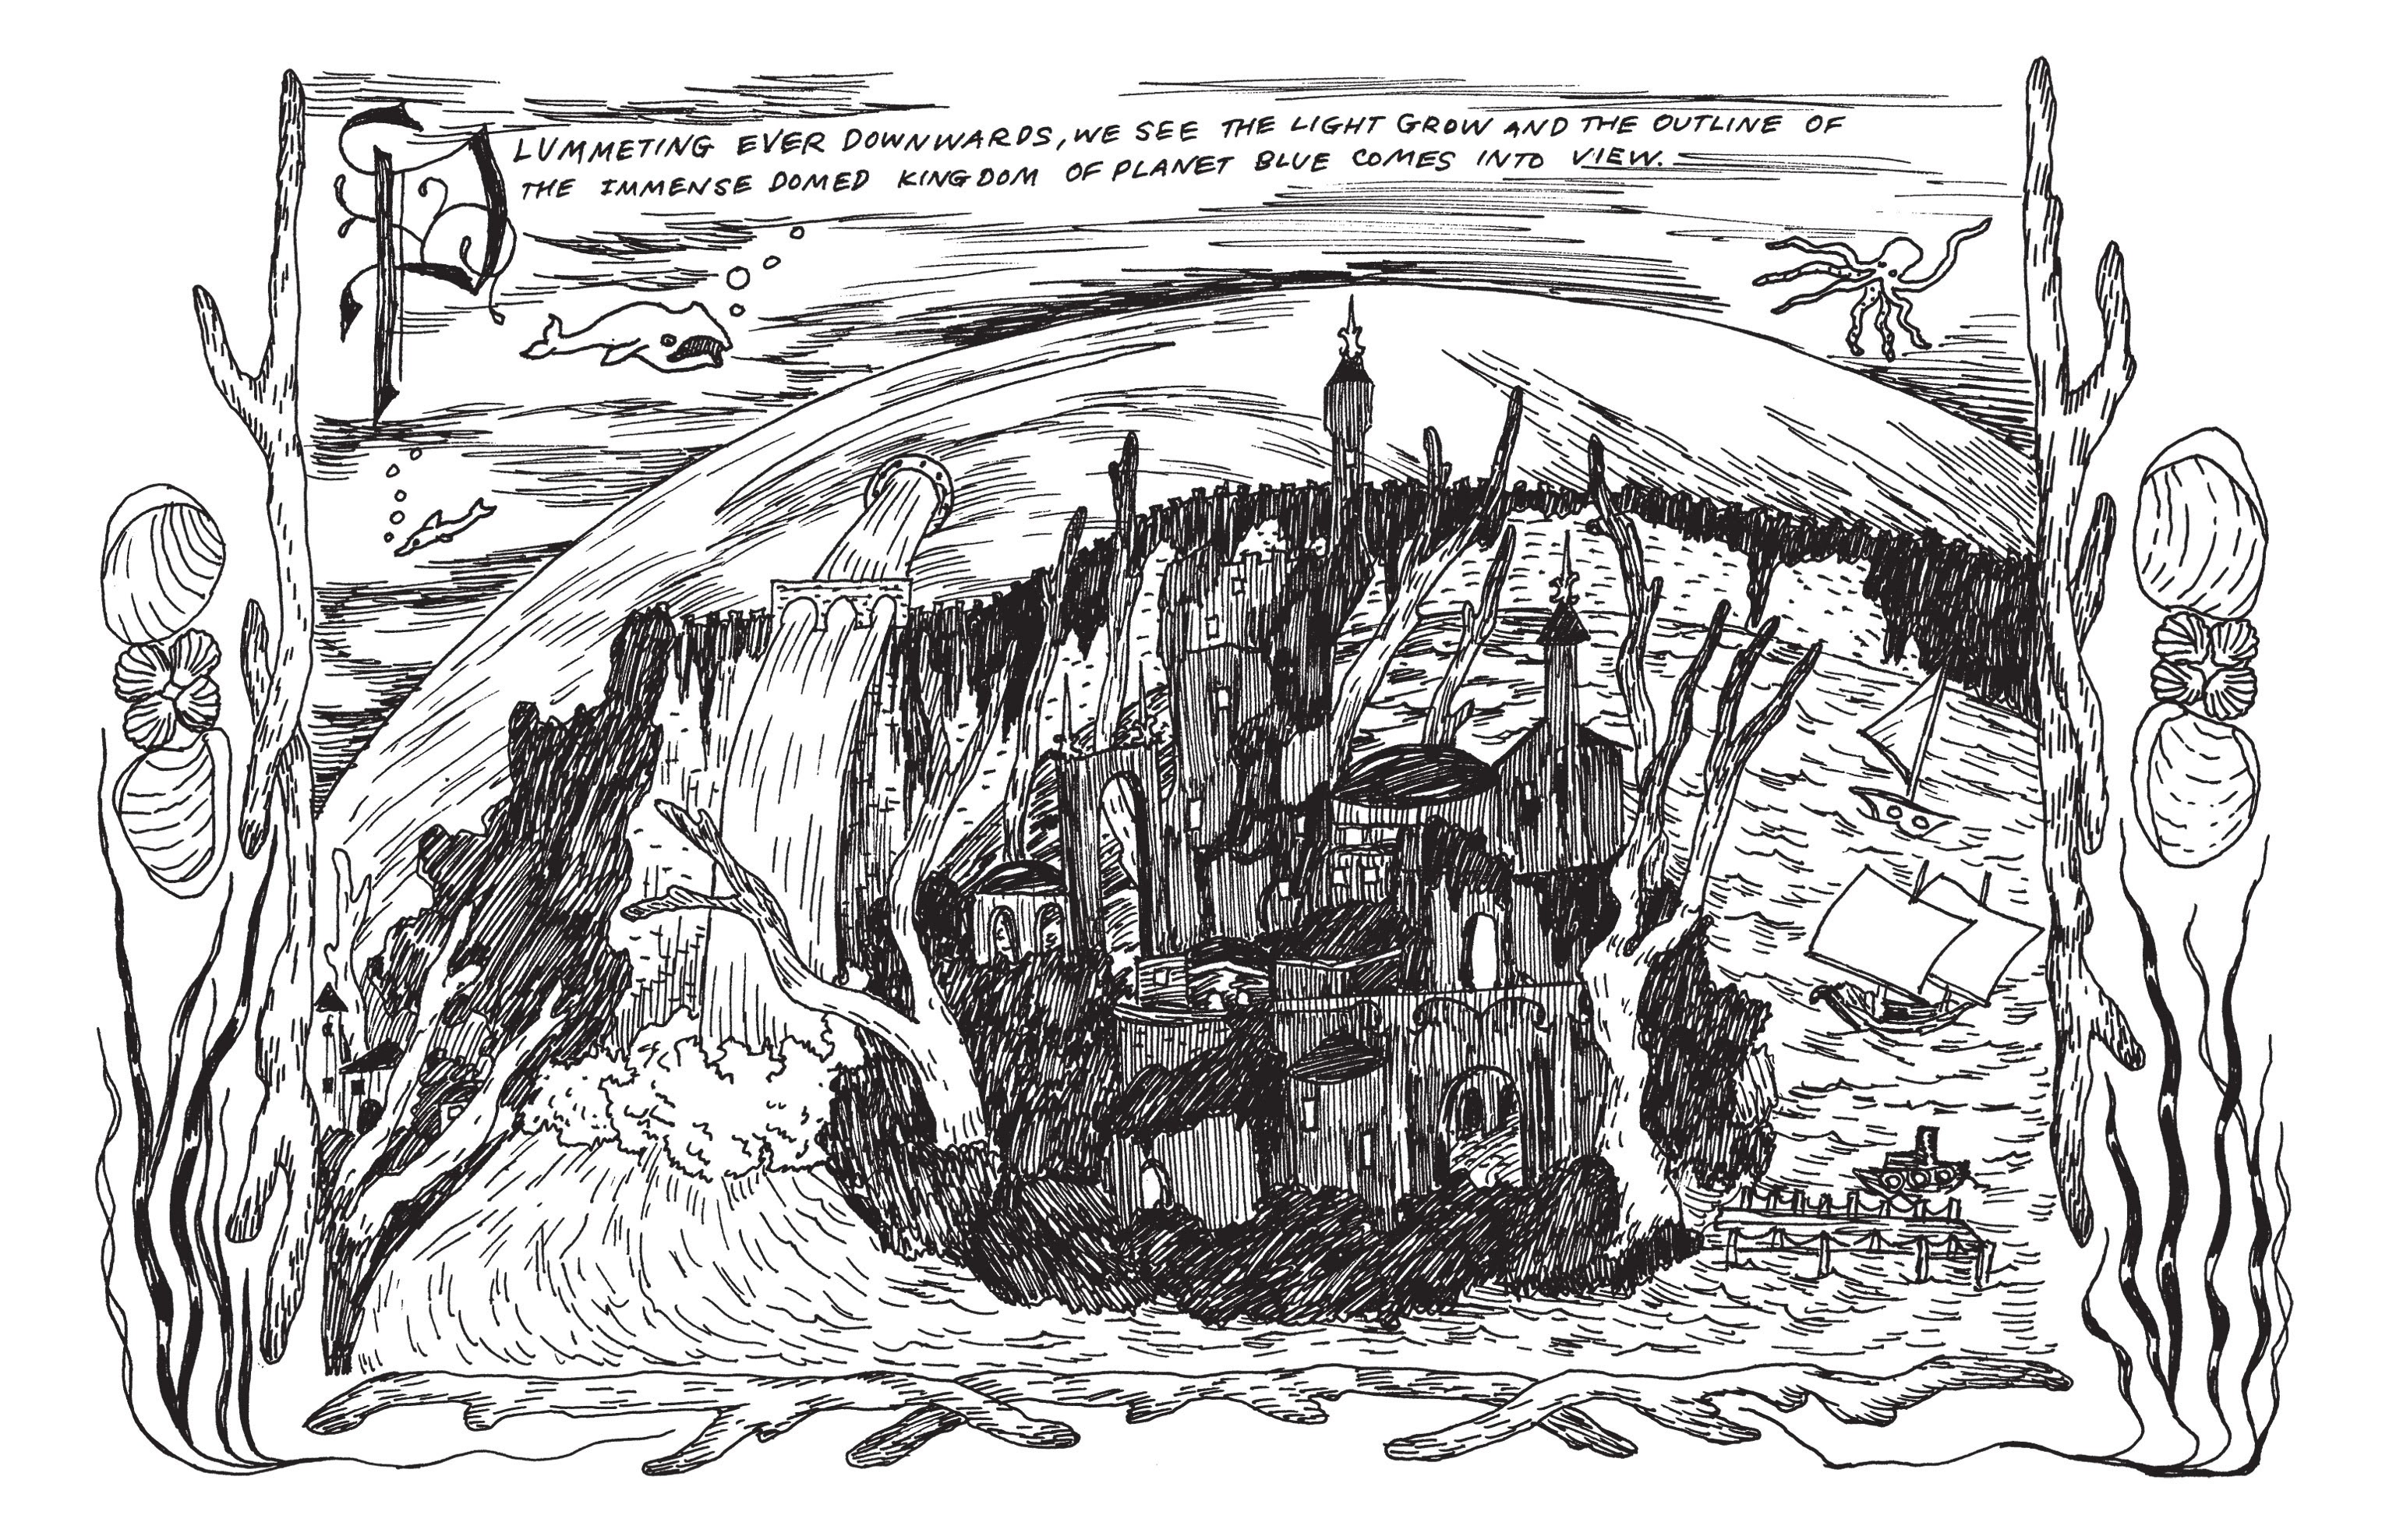 PLUMMETING EVER DOWNWARDS, WE SEE THE LIGHT GROW AND THE OUTLINE OF
THE IMMENSE DOMED KINGDOM OF PLANET BLUE COMES INTO VIEW.